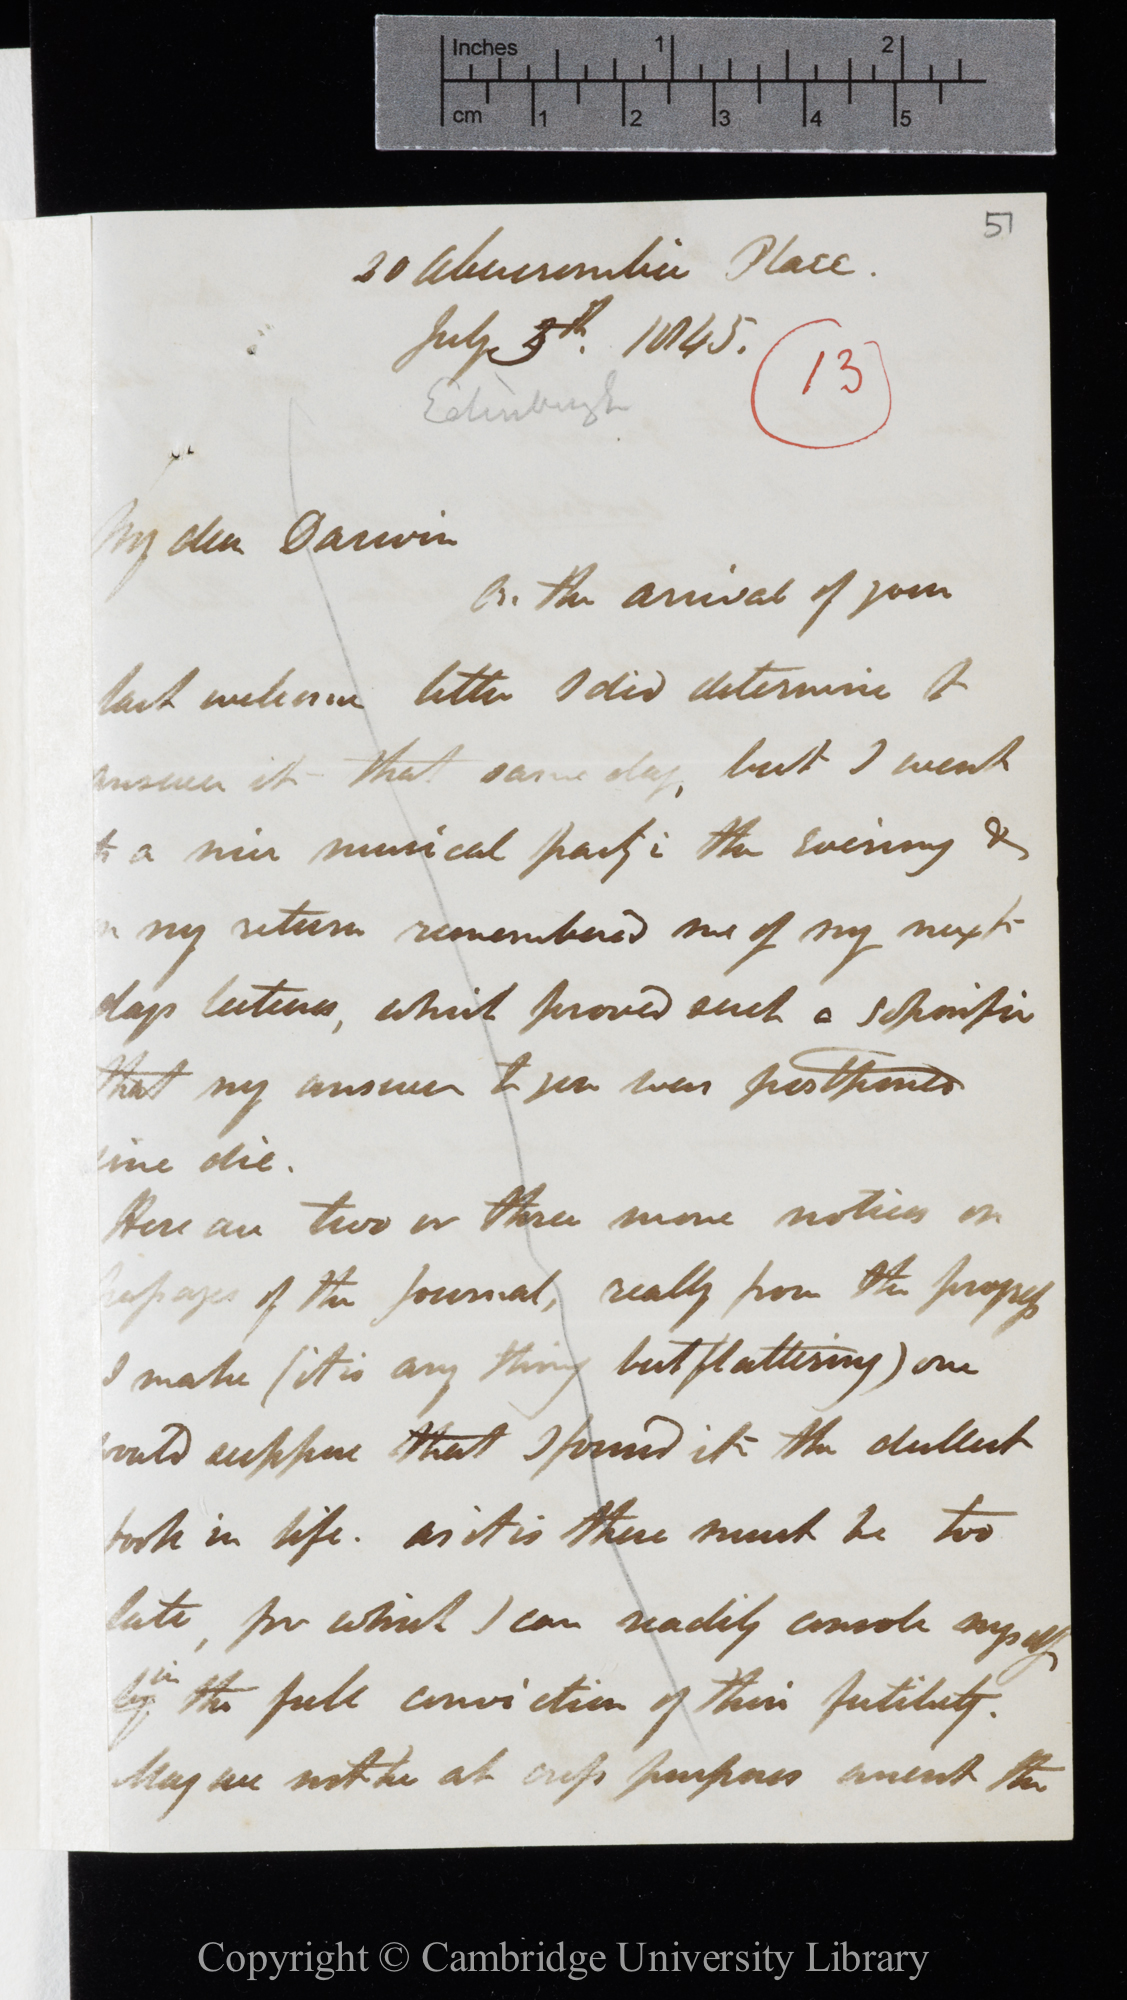 Inches 1 2
cm 1 2 3 4 5
51
20 Abercrombie Place.
July 5th. 1845.
13
Edinburgh
My dear Darwin
On the arrival of your
last welcome letter I did determine to
answer it that same day, but I went
to a nice musical party i the evening &
on my return remembered me of my next
days lectures, which proved such a soporific
that my answer to you was postponed
sine die.
Here are two or three more notices on
the pages of the Journal, really from the progress
I make (it is any thing but flattering) one
would suppose that I found it the dullest
book in life. as it is these must be too
late, for which I can readily console myself
by in the full conviction of their futility.
May we not be at cross purposes anent the
Copyright © Cambridge University Library